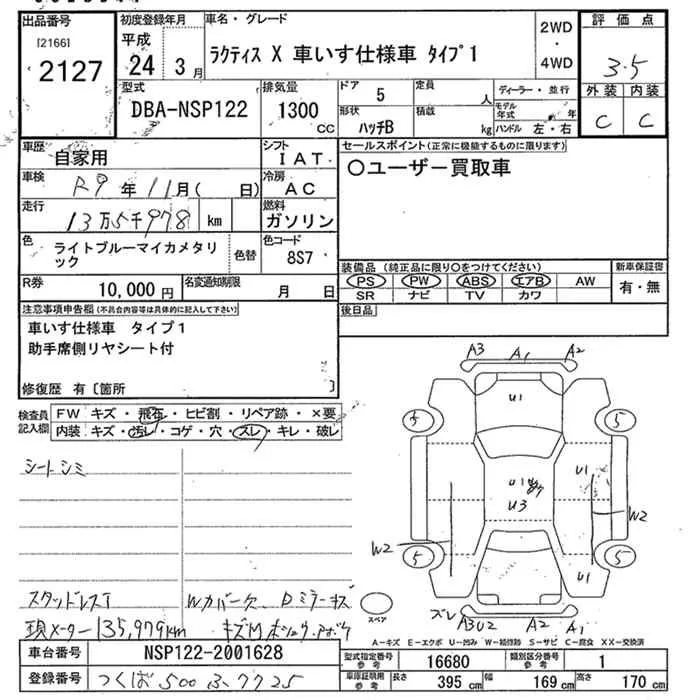 出品番号
[2166]
2127
初度登録年月
平成
24 3 月
車名・グレード
ラクティス X 車いす仕様車 タイプ1
2WD
・
4WD
評価点
3.5
外装 内装
C C
型式
DBA-NSP122
排気量
1300
CC
ドア
5
形状
ハッチB
定員
人
積載
kg
ディーラー・並行
モデル年式 年
ハンドル 左・右
車歴
自家用
シフト
IAT
車検
R9 年 11月 ( 日)
冷房
AC
走行
13万5千978 km
燃料
ガソリン
色
ライトブルーマイカメタリック
色替
色コード
8S7
R券
10,000 円
名変通知期限
月 日
セールスポイント(正常に機能するものに限ります)
○ユーザー買取車
装備品 (純正品に限り○をつけてください)
PS PW ABS エアB AW
SR ナビ TV カワ
新車保証書
有・無
後日品
注意事項申告欄(不具合内容等は具体的に記入して下さい)
車いす仕様車 タイプ1
助手席側リヤシート付
修復歴 有 〔箇所 〕
検査員
記入欄
FW キズ・飛石・ヒビ割・リペア跡・×要
内装 キズ・汚レ・コゲ・穴・スレ・キレ・破レ
シートシミ
スタッドレスT
Wカバー欠 Dミラーキズ
現メーター135,979km
キズM
A3 A1 A2
U1
5 5
U1
U1
U3
W2
W2
5 5
U1
ズレ
A3U2 A2 A1
スペア
A-キズ E-エクボ U-凹み W-補修跡 S-サビ C-腐食 XX-交換済
車台番号
NSP122-2001628
登録番号
つくば 500 ふ 7725
型式指定番号
参考
16680
類別区分番号
参考
1
車庫証明用
参考
長さ
395 cm
幅
169 cm
高さ
170 cm